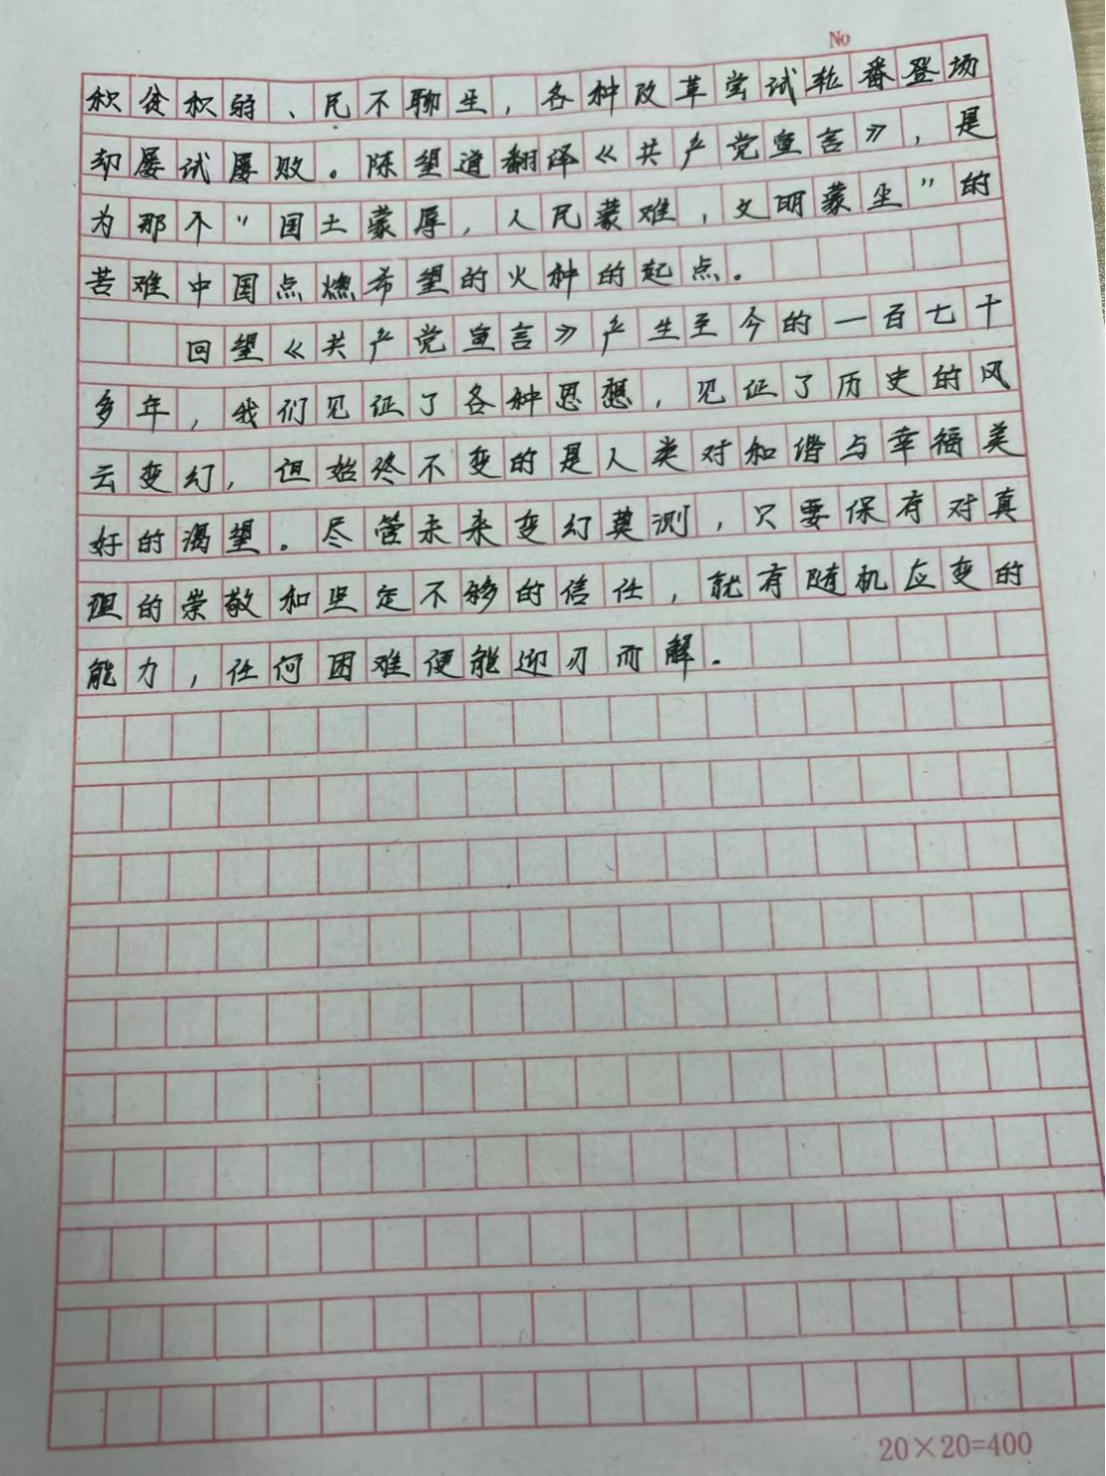 No
积贫积弱、民不聊生，各种改革尝试轮番登场
却屡试屡败。陈望道翻译《共产党宣言》，是
为那个"国土蒙辱，人民蒙难，文明蒙尘"的
苦难中国点燃希望的火种的起点。
回望《共产党宣言》产生至今的一百七十
多年，我们见证了各种思想，见证了历史的风
云变幻，但始终不变的是人类对和谐与幸福美
好的渴望。尽管未来变幻莫测，只要保有对真
理的崇敬和坚定不移的信任，就有随机应变的
能力，任何困难便能迎刃而解。
20×20=400